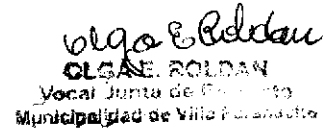 Olga E Roldan
OLGA E. ROLDAN
Vocal Junta de
Municipalidad de Villa